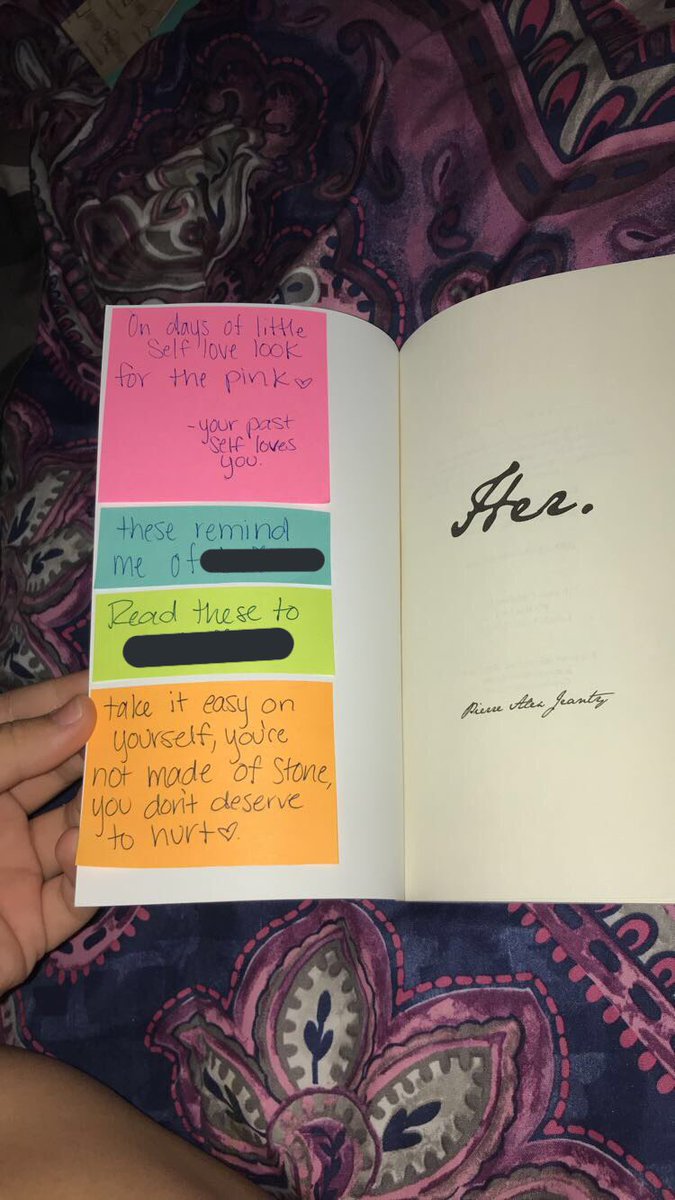 On days of little
Self love look
for the pink♡
-your past
self loves
you.
these remind
me of
Read these to
take it easy on
yourself, you're
not made of Stone,
you don't deserve
to hurt♡
Her.
Pierre Alex Jeanty